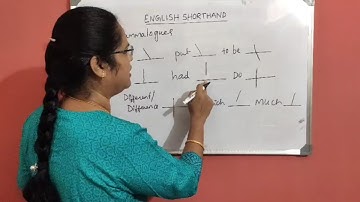 ENGILISH SHORTHAND
put to be
had Do
Different/
Difference Much